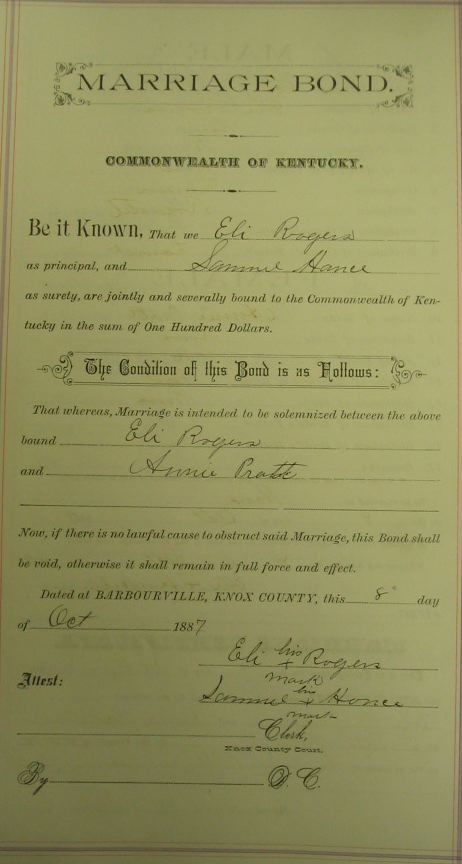 MARRIAGE BOND.
COMMONWEALTH OF KENTUCKY.
Be it Known, That we Eli Rogers
as principal, and Samuel Hance
as surety, are jointly and severally bound to the Commonwealth of Ken-
tucky in the sum of One Hundred Dollars.
The Condition of this Bond is as Follows:
That whereas, Marriage is intended to be solemnized between the above
bound Eli Rogers
and Annie Pratt
Now, if there is no lawful cause to obstruct said Marriage, this Bond shall
be void, otherwise it shall remain in full force and effect.
Dated at BARBOURVILLE, KNOX COUNTY, this 8 day
of Oct 1887
Eli his x Rogers
mark
Attest:
Samuel his x Hance
mark
Clerk,
Knox County Court.
By D. C.